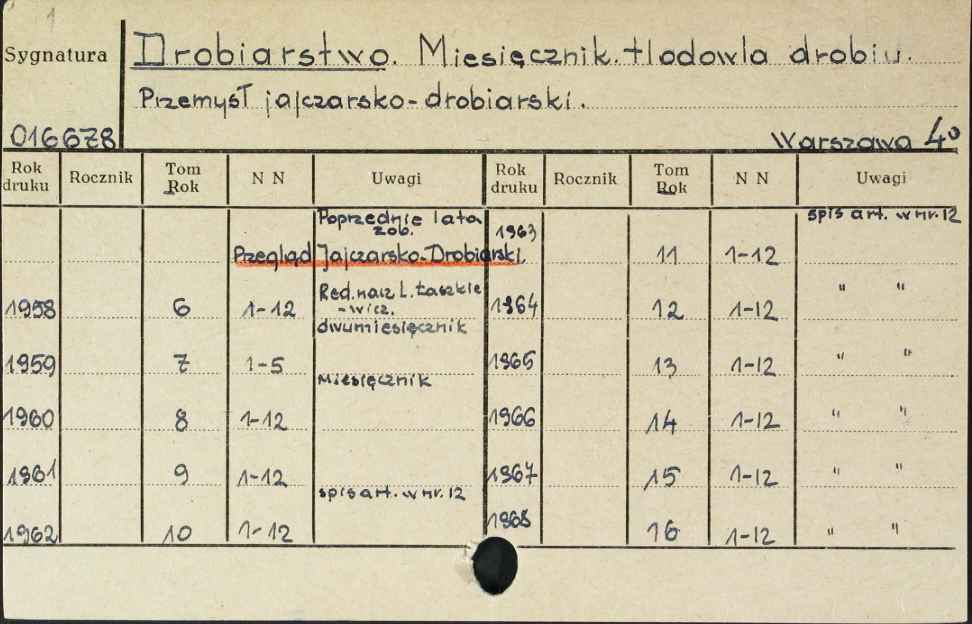 1
Sygnatura
Drobiarstwo. Miesięcznik. Hodowla drobiu.
Przemysł jajczarsko-drobiarski.
016678
Warszawa 4°
Rok druku Rocznik Tom Rok N N Uwagi Rok druku Rocznik Tom Rok N N Uwagi
Poprzednie lata zob. Przegląd Jajczarsko-Drobiarski.
1958 6 1-12 Red. nacz L. Łaszkie-wicz. dwumiesięcznik
1959 7 1-5 Miesięcznik
1960 8 1-12
1961 9 1-12
1962 10 1-12 spis art. w nr. 12
1963 11 1-12 spis art. w nr. 12
1964 12 1-12 " "
1965 13 1-12 " "
1966 14 1-12 " "
1967 15 1-12 " "
1968 16 1-12 " "